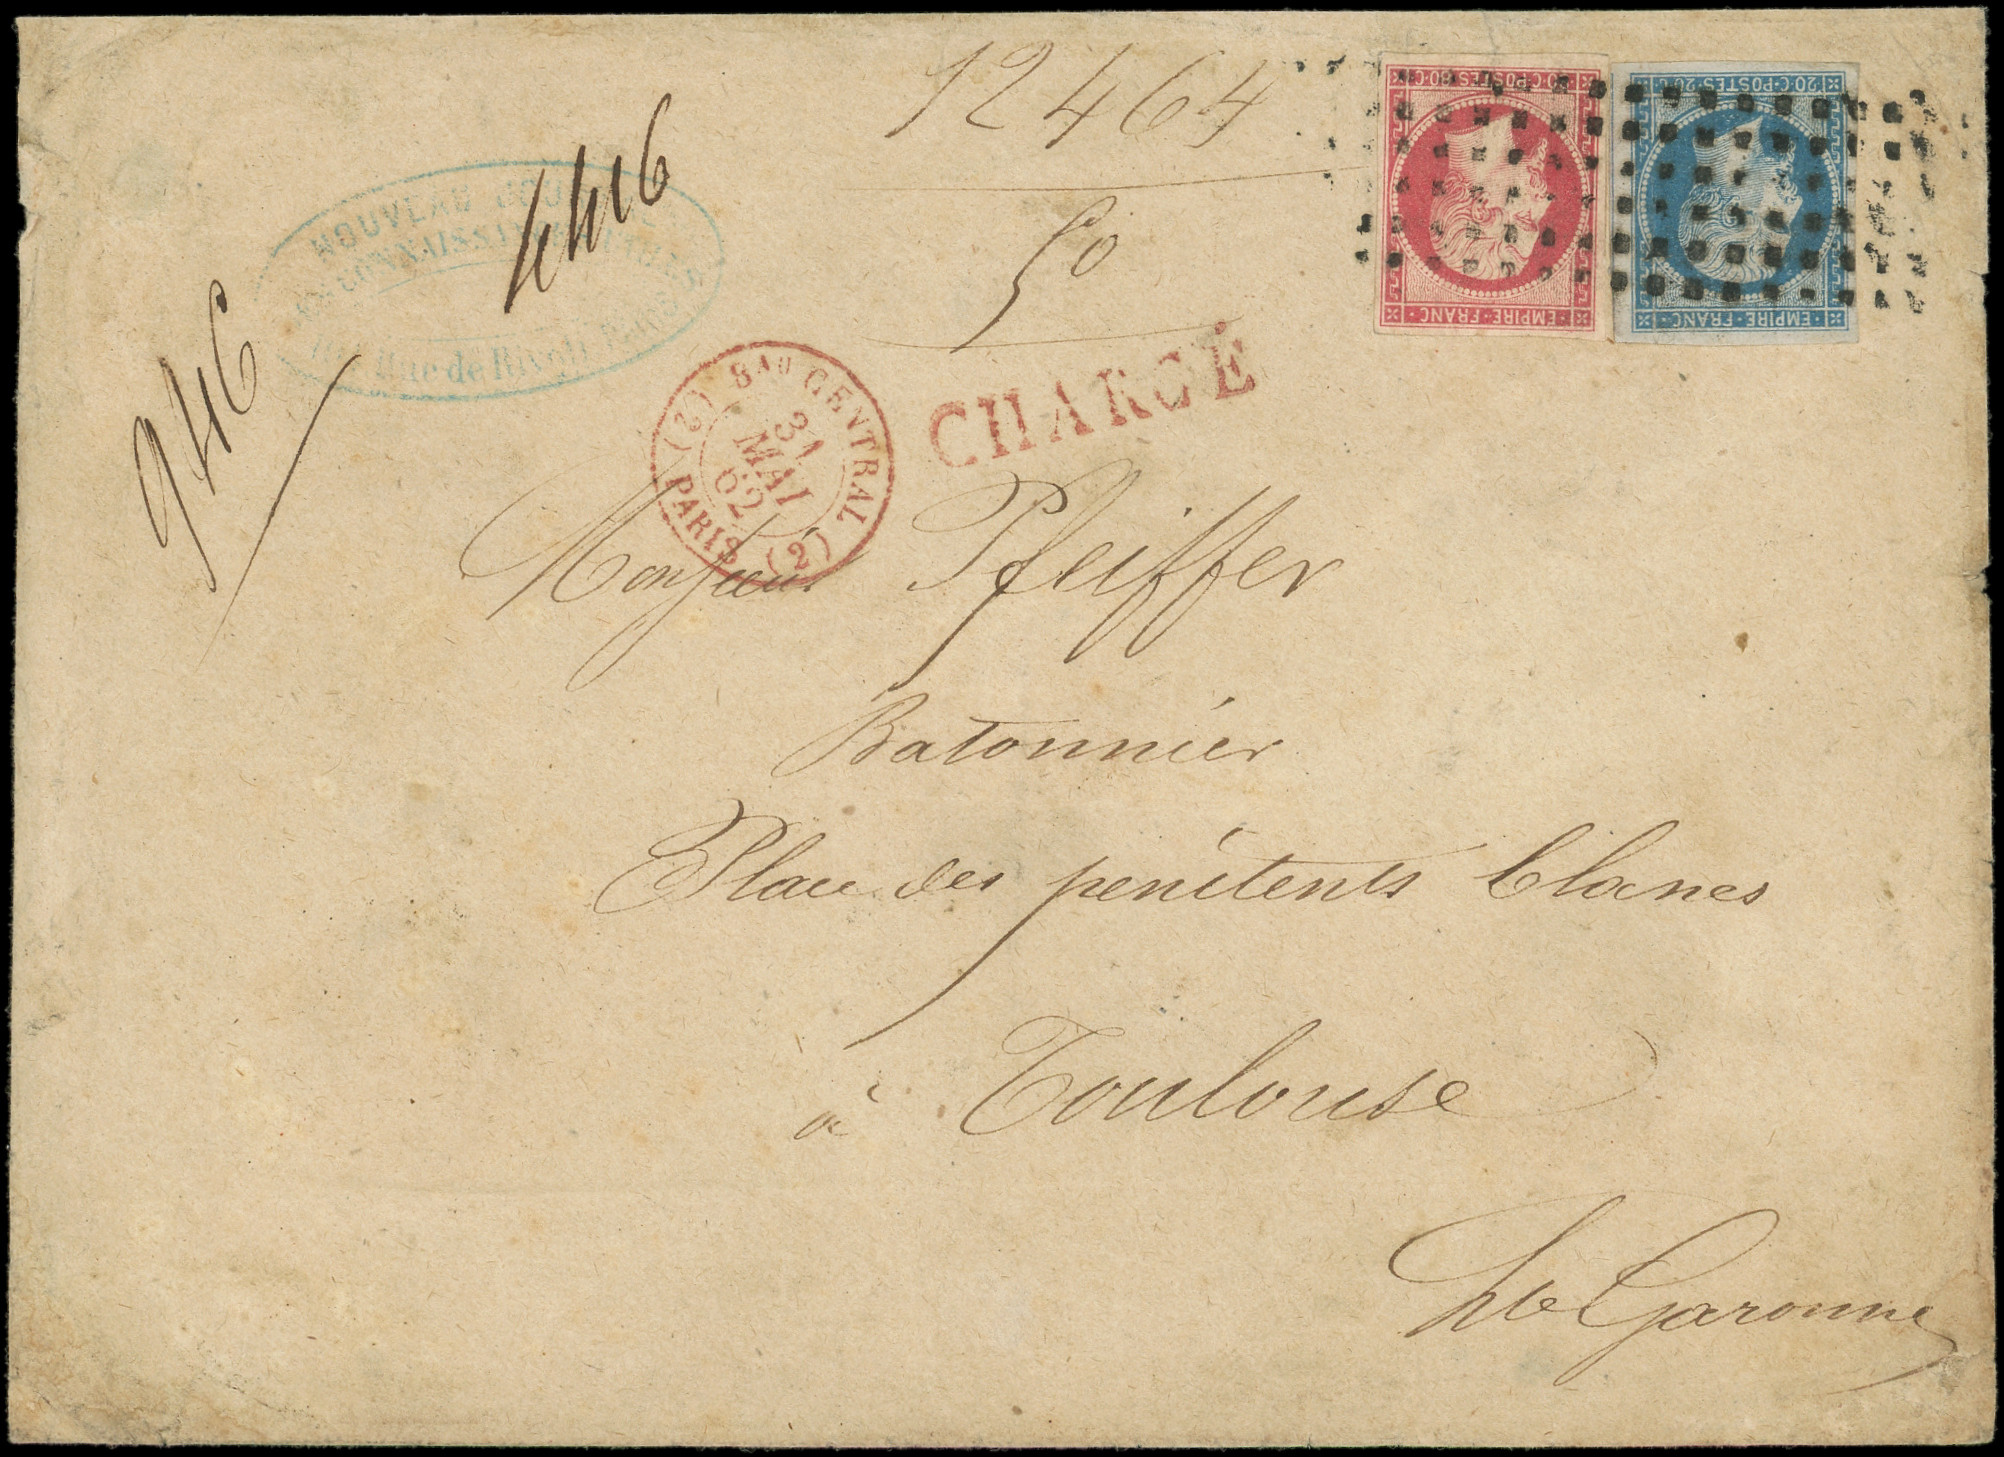 12464
50
4416
946
NOUVEAU
CONNAISSIN
Rue de Rivoli
80·C·POSTES·80·C
EMPIRE·FRANC·
20·C·POSTES·20·C
EMPIRE·FRANC·
(2) BAU CENTRAL (2)
31
MAI
62
PARIS
CHARGÉ
Monsieur Pfeiffer
Batonnier
Place des pénitents blancs
à Toulouse
hte Garonne